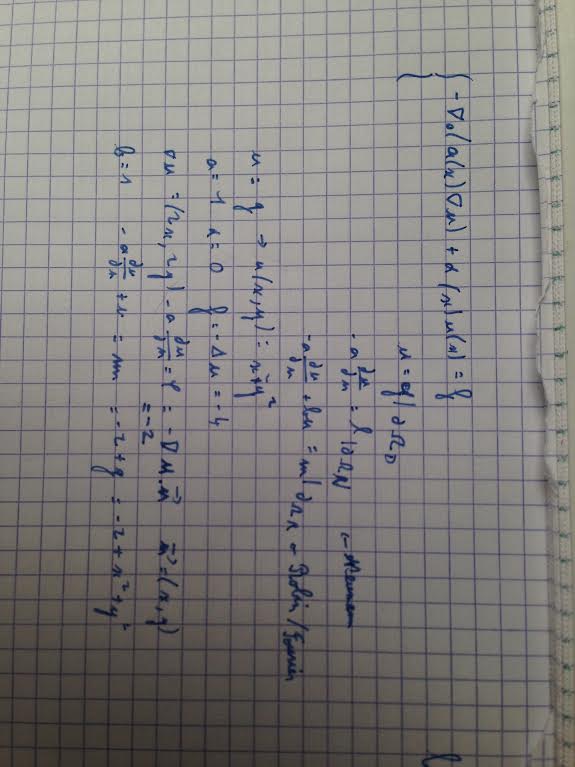 { -∇·(a(x)∇u) + α(x)u(x) = f
u = g | ∂Ω_D
-a ∂u/∂n = l | ∂Ω_N ←
-a ∂u/∂n + bu = m | ∂Ω_R ← Robin / Fourier
u = g → u(x,y) = x²+y²
a = 1 α = 0 f = -Δu = -4
∇u = (2x, 2y) -a ∂u/∂n = l = -∇u·n⃗ n⃗ = (x,y)
= -2
b = 1 -a ∂u/∂n + u = m = -2+g = -2 + x²+y²